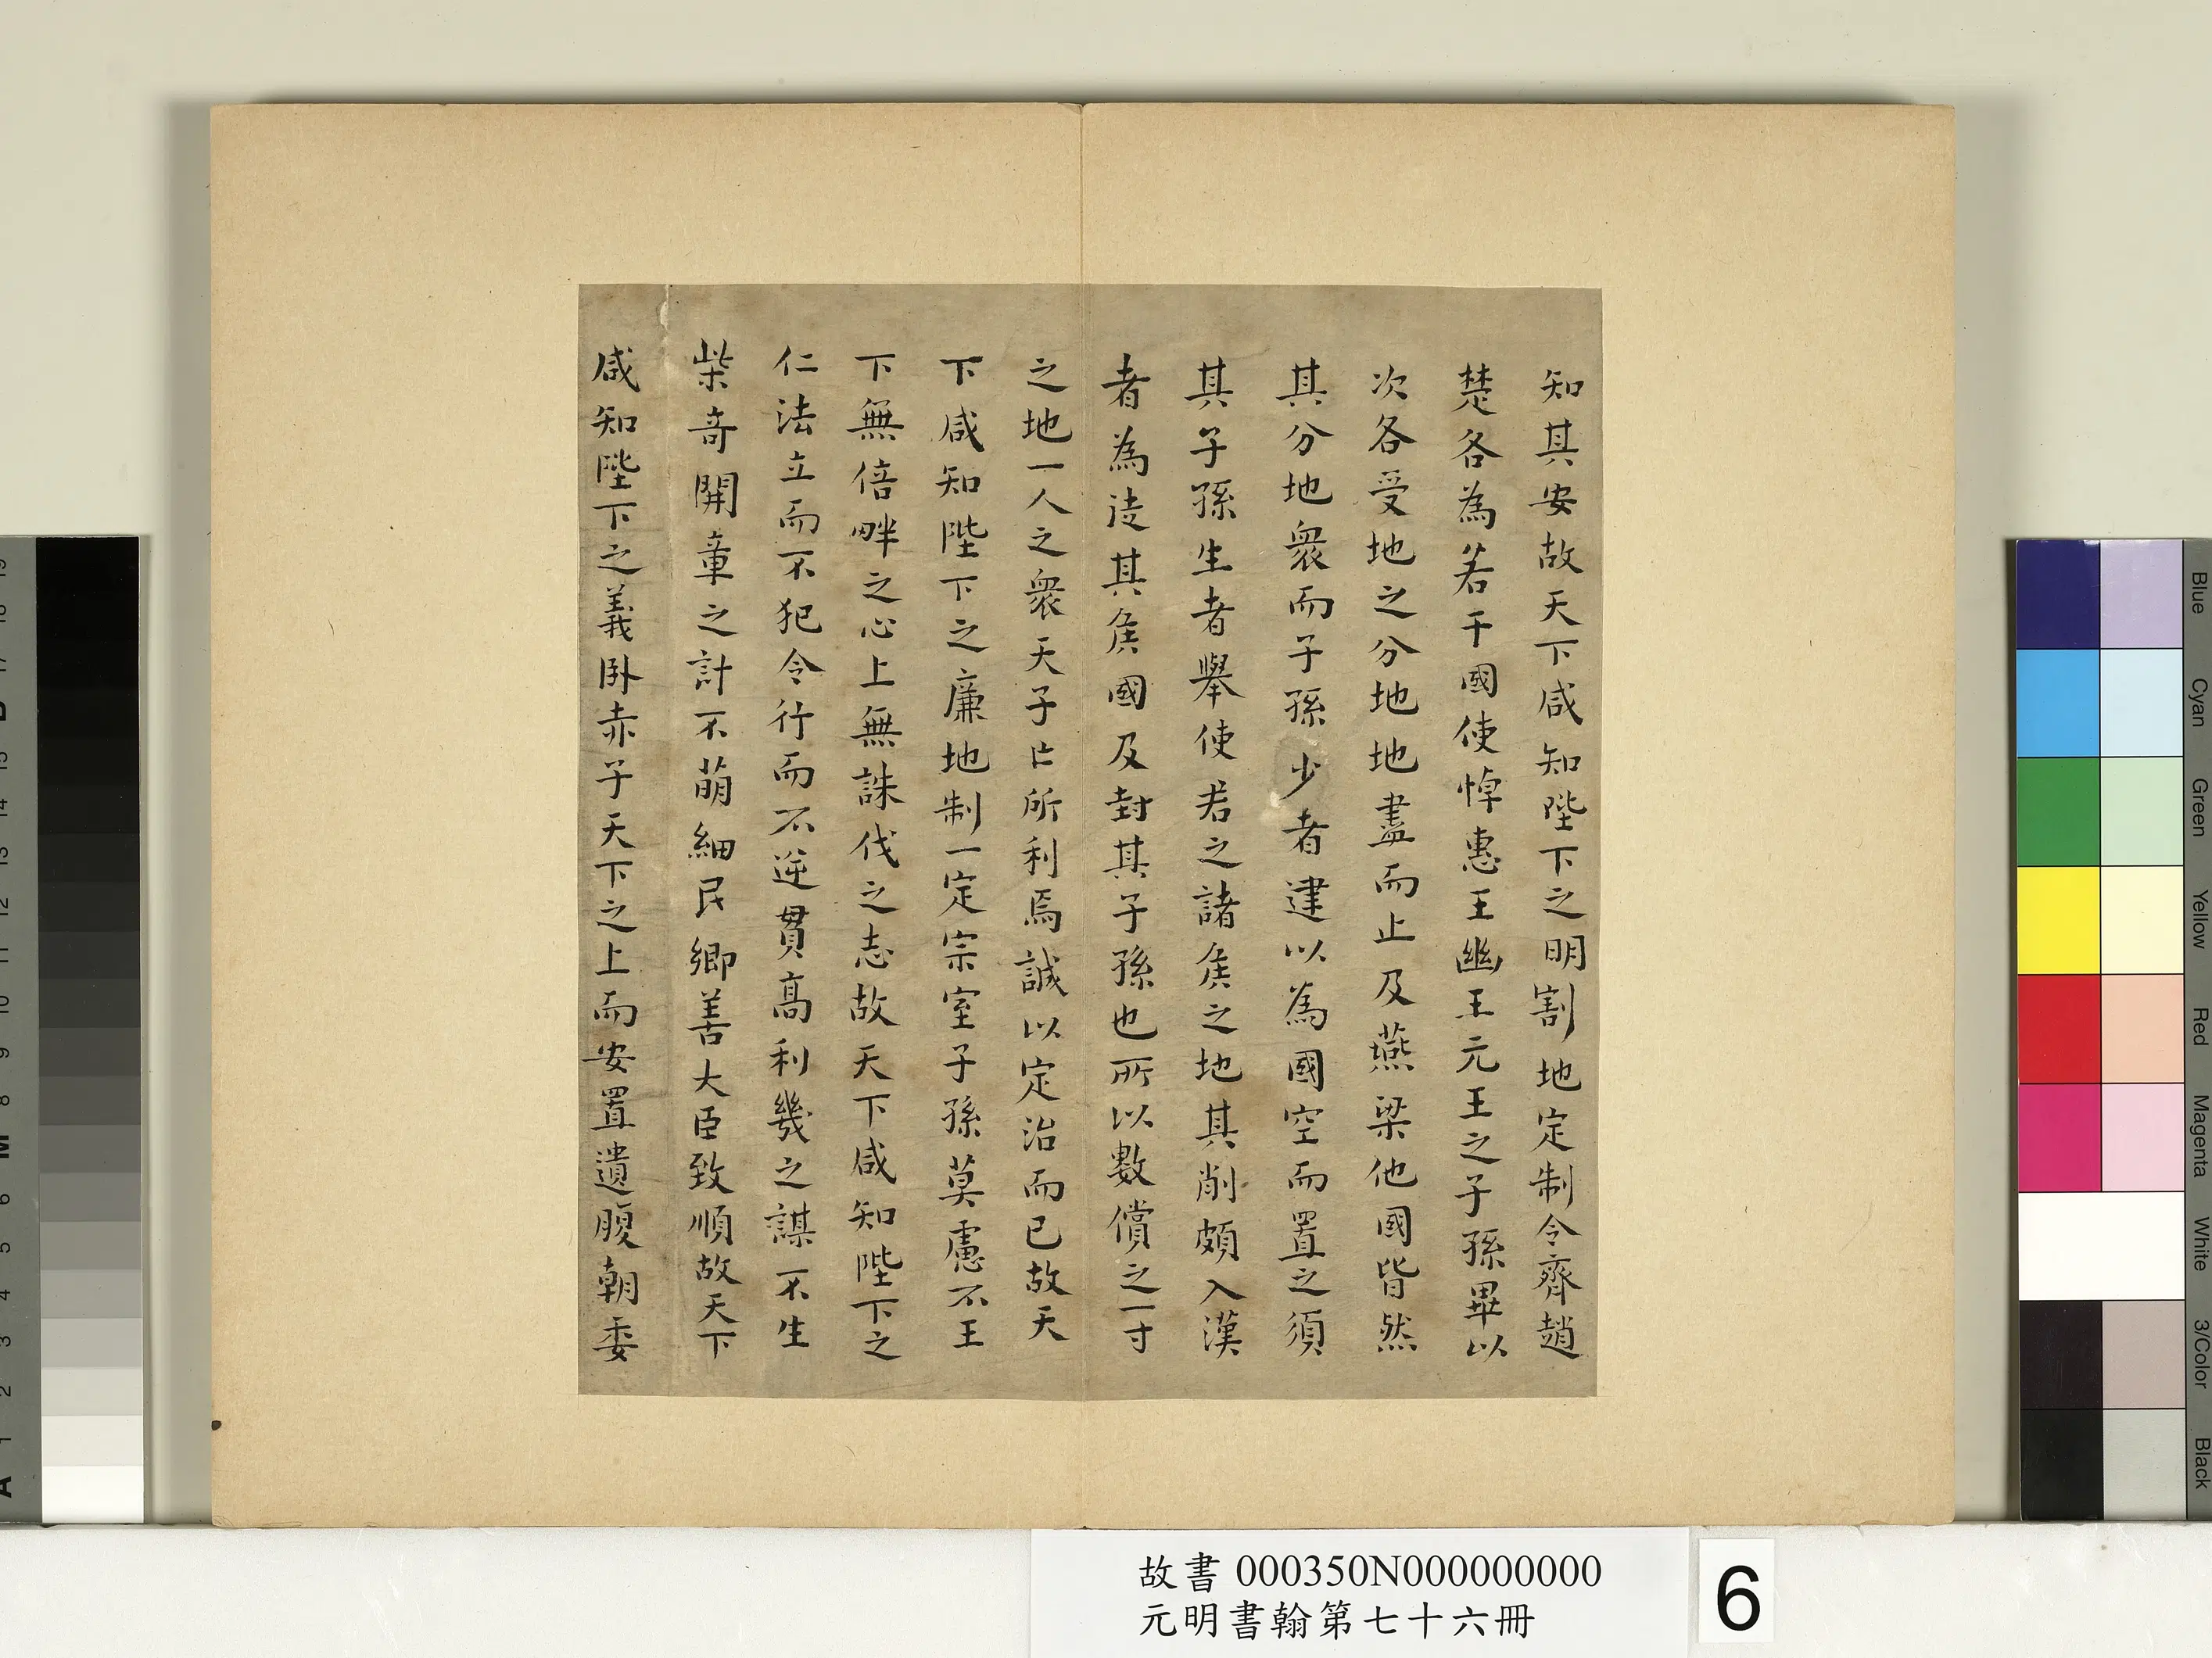 知其安故天下咸知陛下之明割地定制令齊趙
楚各為若干國使悼惠王幽王元王之子孫畢以
次各受地之分地地盡而止及燕梁他國皆然
其分地衆而子孫少者建以為國空而置之須
其子孫生者舉使君之諸侯之地其削頗入漢
者為徙其侯國及封其子孫也所以數償之一寸
之地一人之衆天子亡所利焉誠以定治而已故天
下咸知陛下之廉地制一定宗室子孫莫慮不王
下無倍畔之心上無誅伐之志故天下咸知陛下之
仁法立而不犯令行而不逆貫高利幾之謀不生
柴奇開章之計不萌細民鄉善大臣致順故天下
咸知陛下之義臥赤子天下之上而安置遺腹朝委
故書 000350N000000000
元明書翰第七十六冊
6
Blue
Cyan
Green
Yellow
Red
Magenta
White
3/Color
Black
A 1 2 3 4 5 6 M 8 9 10 11 12 13 14 15 B 17 18 19